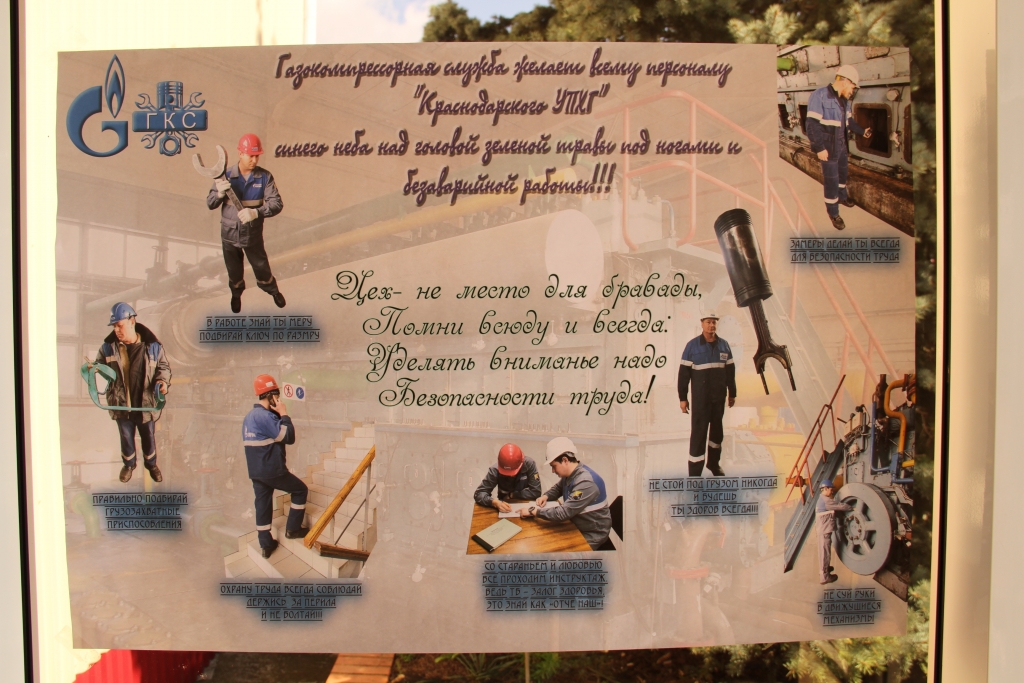 ГКС
Газокомпрессорная служба желает всему персоналу
"Краснодарского УПХГ"
синего неба над головой зеленой травы под ногами и
безаварийной работы!!!
ЗАМЕРЫ ДЕЛАЙ ТЫ ВСЕГДА
ДЛЯ БЕЗОПАСНОСТИ ТРУДА
В РАБОТЕ ЗНАЙ ТЫ МЕРУ
ПОДБИРАЙ КЛЮЧ ПО РАЗМРУ
Цех- не место для бравады,
Помни всюду и всегда:
Уделять вниманье надо
Безопасности труда!
ПРАВИЛЬНО ПОДБИРАЙ
ГРУЗОЗАХВАТНЫЕ
ПРИСПОСОБЛЕНИЯ
НЕ СТОЙ ПОД ГРУЗОМ НИКОГДА
И БУДЕШЬ
ТЫ ЗДОРОВ ВСЕГДА!!!
ОХРАНУ ТРУДА ВСЕГДА СОБЛЮДАЙ
ДЕРЖИСЬ ЗА ПЕРИЛА
И НЕ БОЛТАЙ!!!
СО СТАРАНЬЕМ И ЛЮБОВЬЮ
ВСЕ ПРОХОДИМ ИНСТРУКТАЖ
ВЕДЬ ТБ - ЗАЛОГ ЗДОРОВЬЯ
ЭТО ЗНАЙ КАК «ОТЧЕ НАШ»!
НЕ СУЙ РУКИ
В ДВИЖУЩИЕСЯ
МЕХАНИЗМЫ